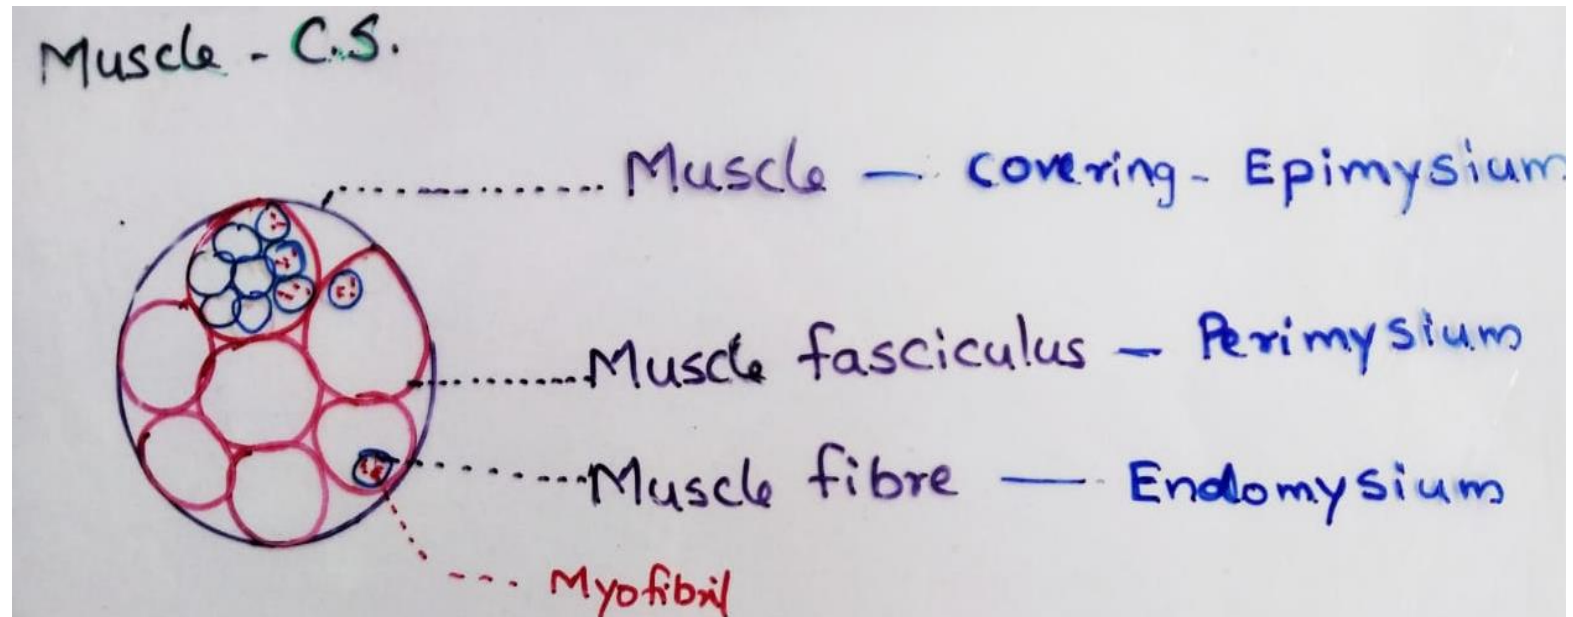 Muscle - C.S.
Muscle — covering - Epimysium
Muscle fasciculus — Perimysium
Muscle fibre — Endomysium
Myofibril